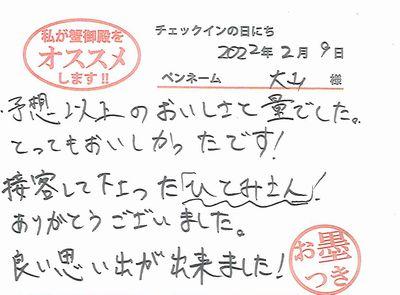 私が蟹御殿を
オススメ
します!!
チェックインの日にち
2022年2月9日
ペンネーム 大山 様
・予想以上のおいしさと量でした。
とってもおいしかったです!
接客して下さった「ひてみさん」!
ありがとうございました。
良い思い出が出来ました!
お墨
つき